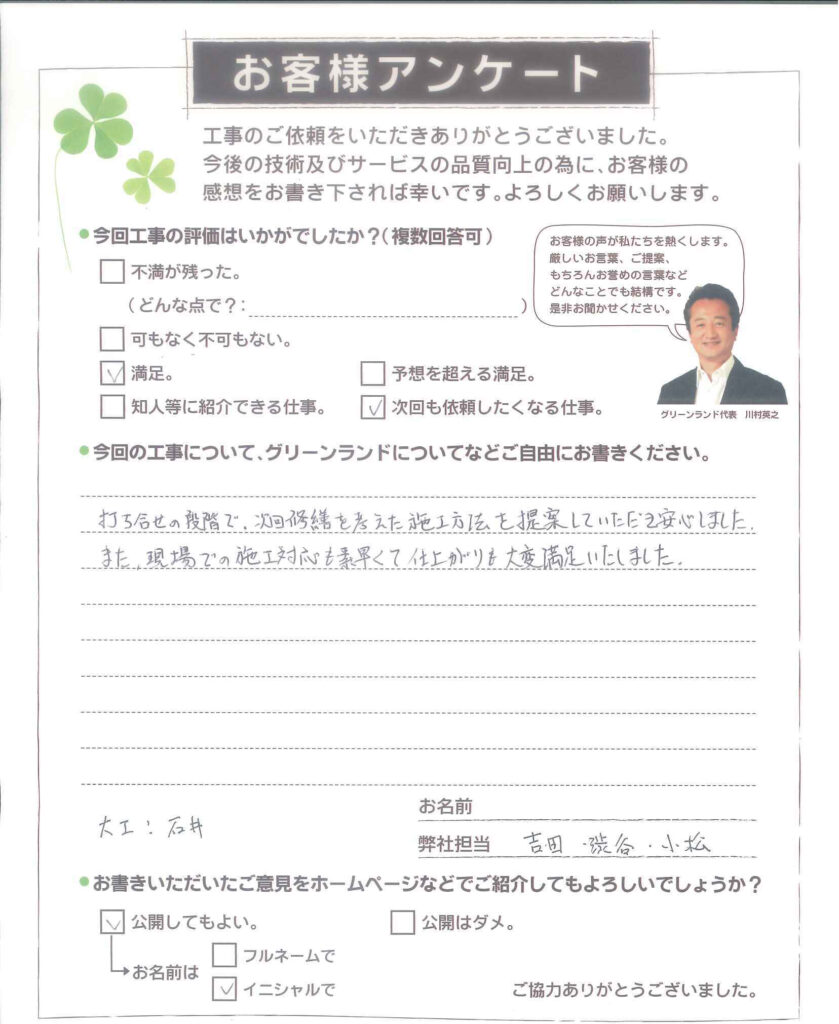 お客様アンケート
工事のご依頼をいただきありがとうございました。
今後の技術及びサービスの品質向上の為に、お客様の
感想をお書き下されば幸いです。よろしくお願いします。
今回工事の評価はいかがでしたか?(複数回答可)
不満が残った。
(どんな点で?: )
可もなく不可もない。
満足。
予想を超える満足。
知人等に紹介できる仕事。
次回も依頼したくなる仕事。
お客様の声が私たちを熱くします。
厳しいお言葉、ご提案、
もちろんお誉めの言葉など
どんなことでも結構です。
是非お聞かせください。
グリーンランド代表 川村英之
今回の工事について、グリーンランドについてなどご自由にお書きください。
打ち合せの段階で、次回修繕を考えた施工方法を提案していただき安心しました。
また、現場での施工対応も素早くて仕上がりも大変満足いたしました。
大工:石井
お名前
弊社担当 吉田・渋谷・小松
お書きいただいたご意見をホームページなどでご紹介してもよろしいでしょうか?
公開してもよい。
公開はダメ。
お名前は
フルネームで
イニシャルで
ご協力ありがとうございました。